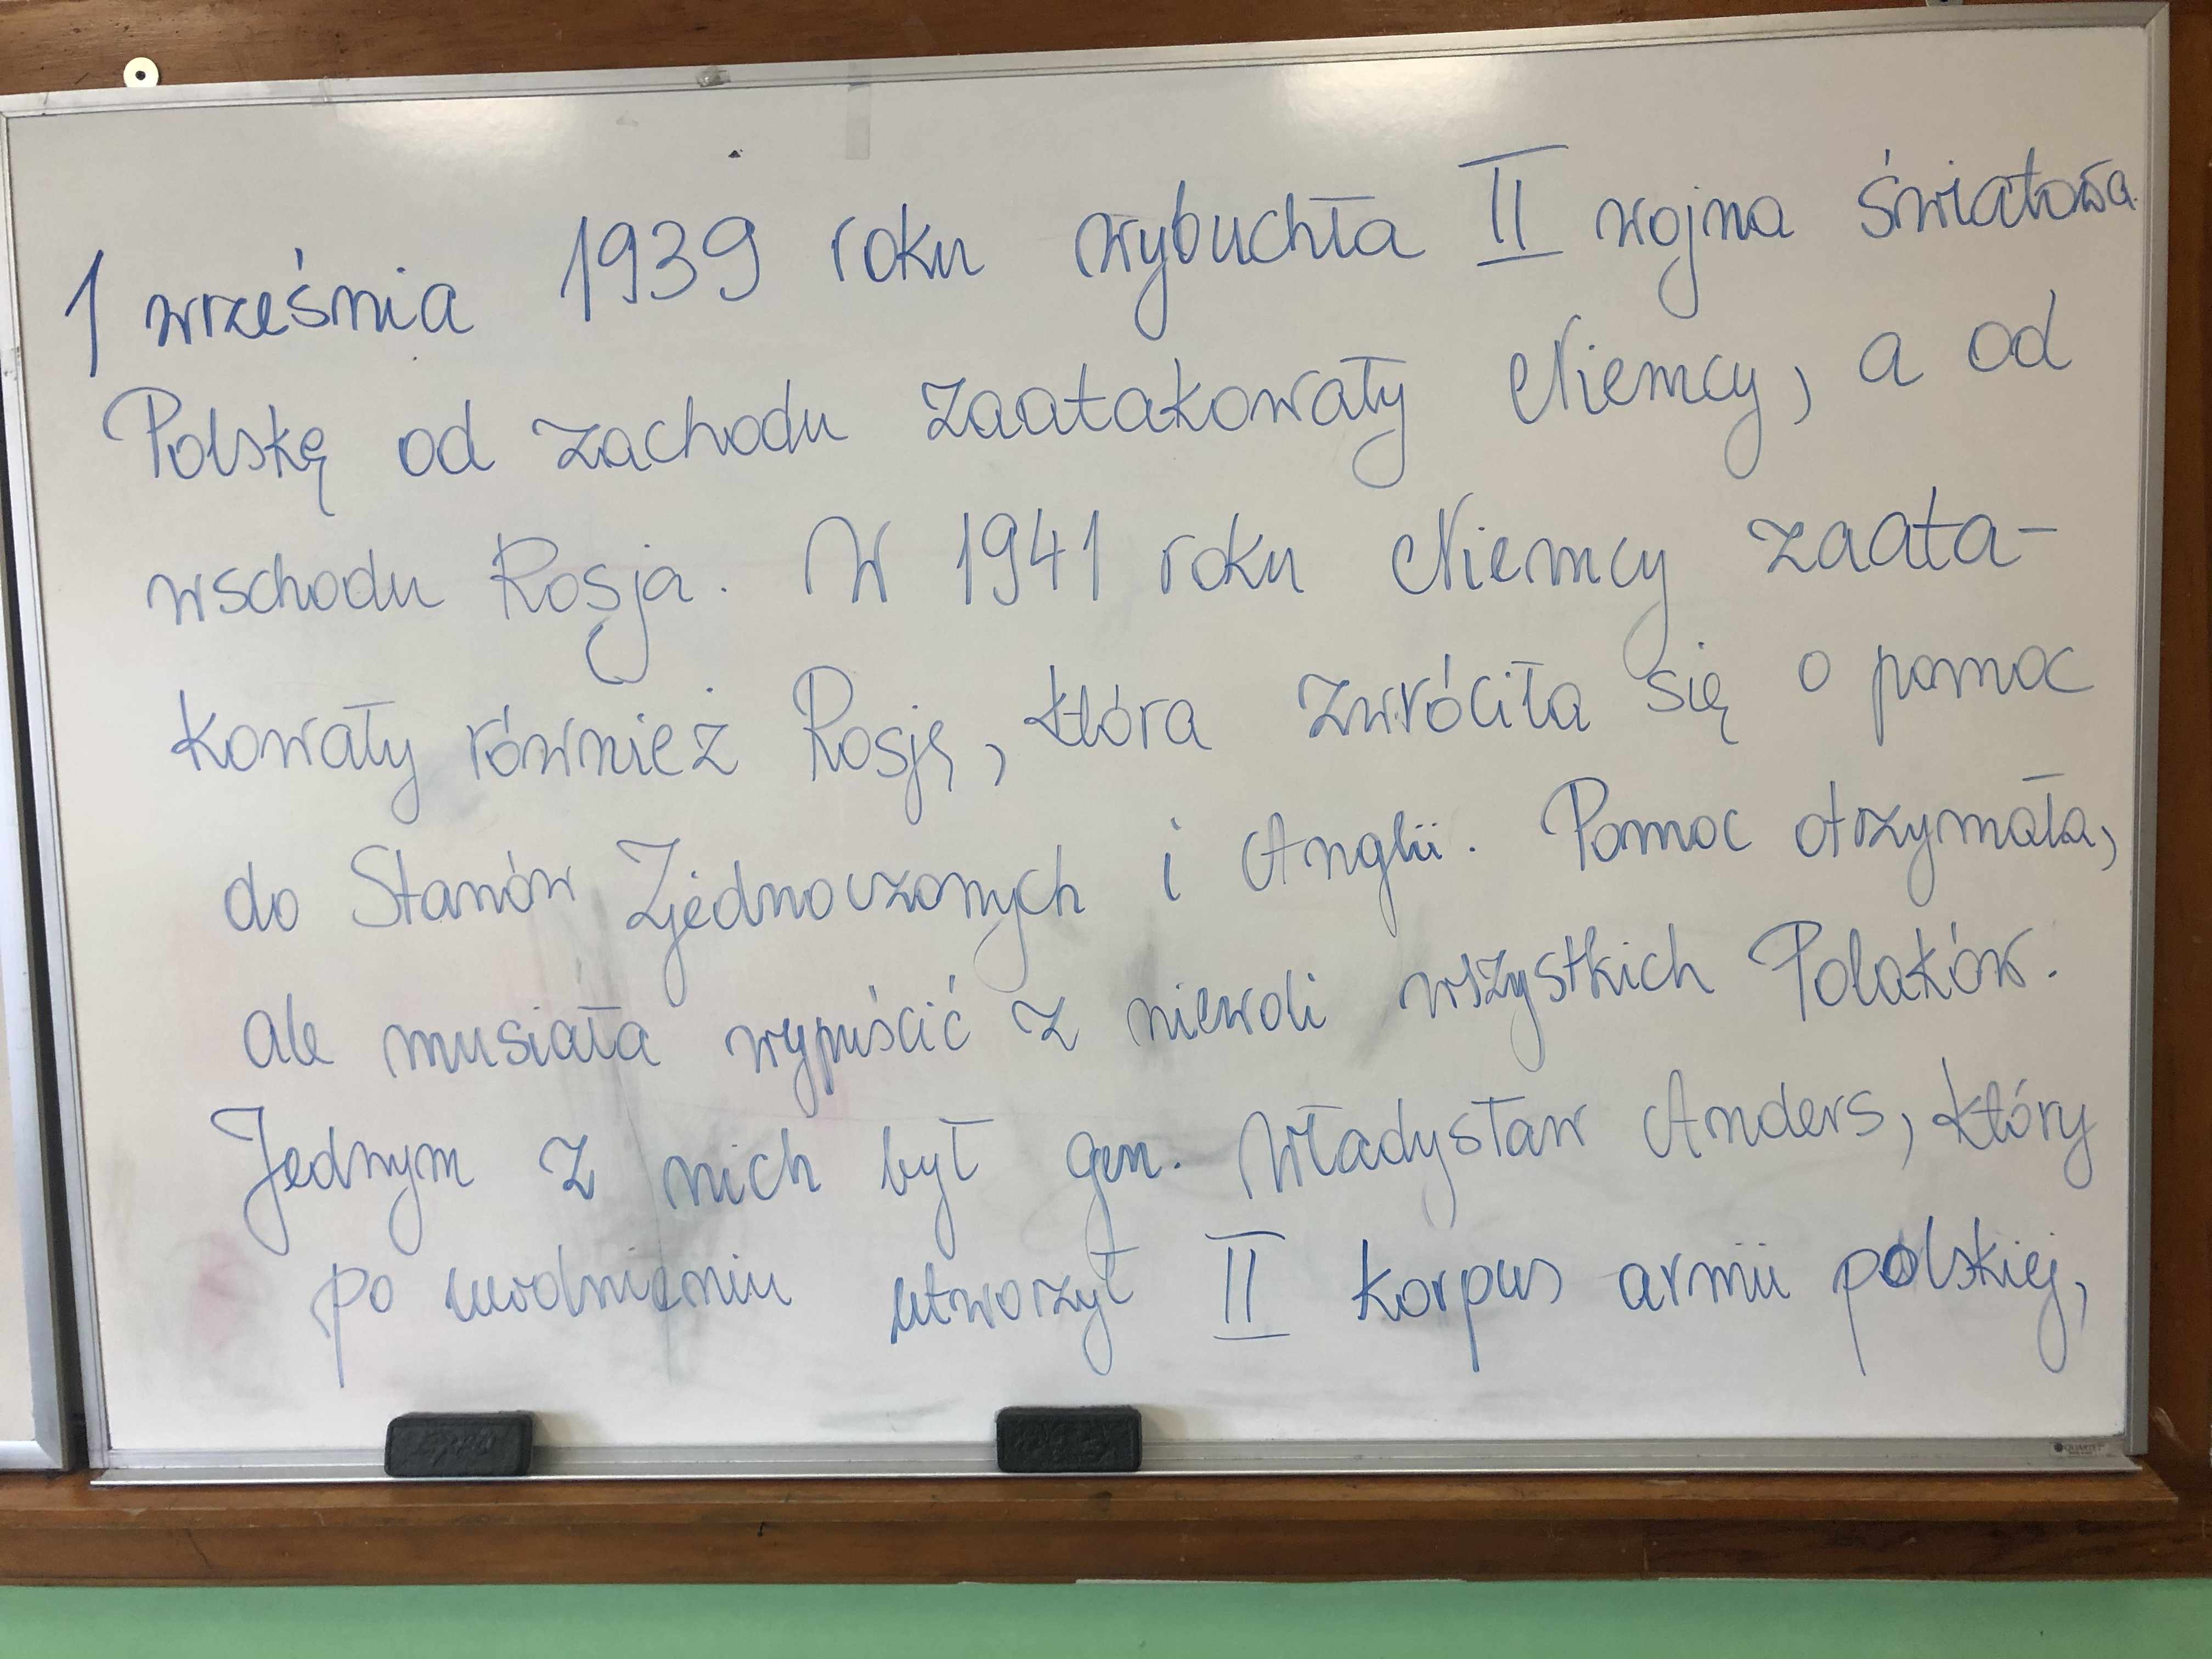 1 września 1939 roku wybuchła II wojna światowa.
Polskę od zachodu zaatakowały Niemcy, a od
wschodu Rosja. W 1941 roku Niemcy zaata-
kowały również Rosję, która zwróciła się o pomoc
do Stanów Zjednoczonych i Anglii. Pomoc otrzymała,
ale musiała wypuścić z niewoli wszystkich Polaków.
Jednym z nich był gen. Władysław Anders, który
po uwolnieniu utworzył II korpus armii polskiej,
QUARTET